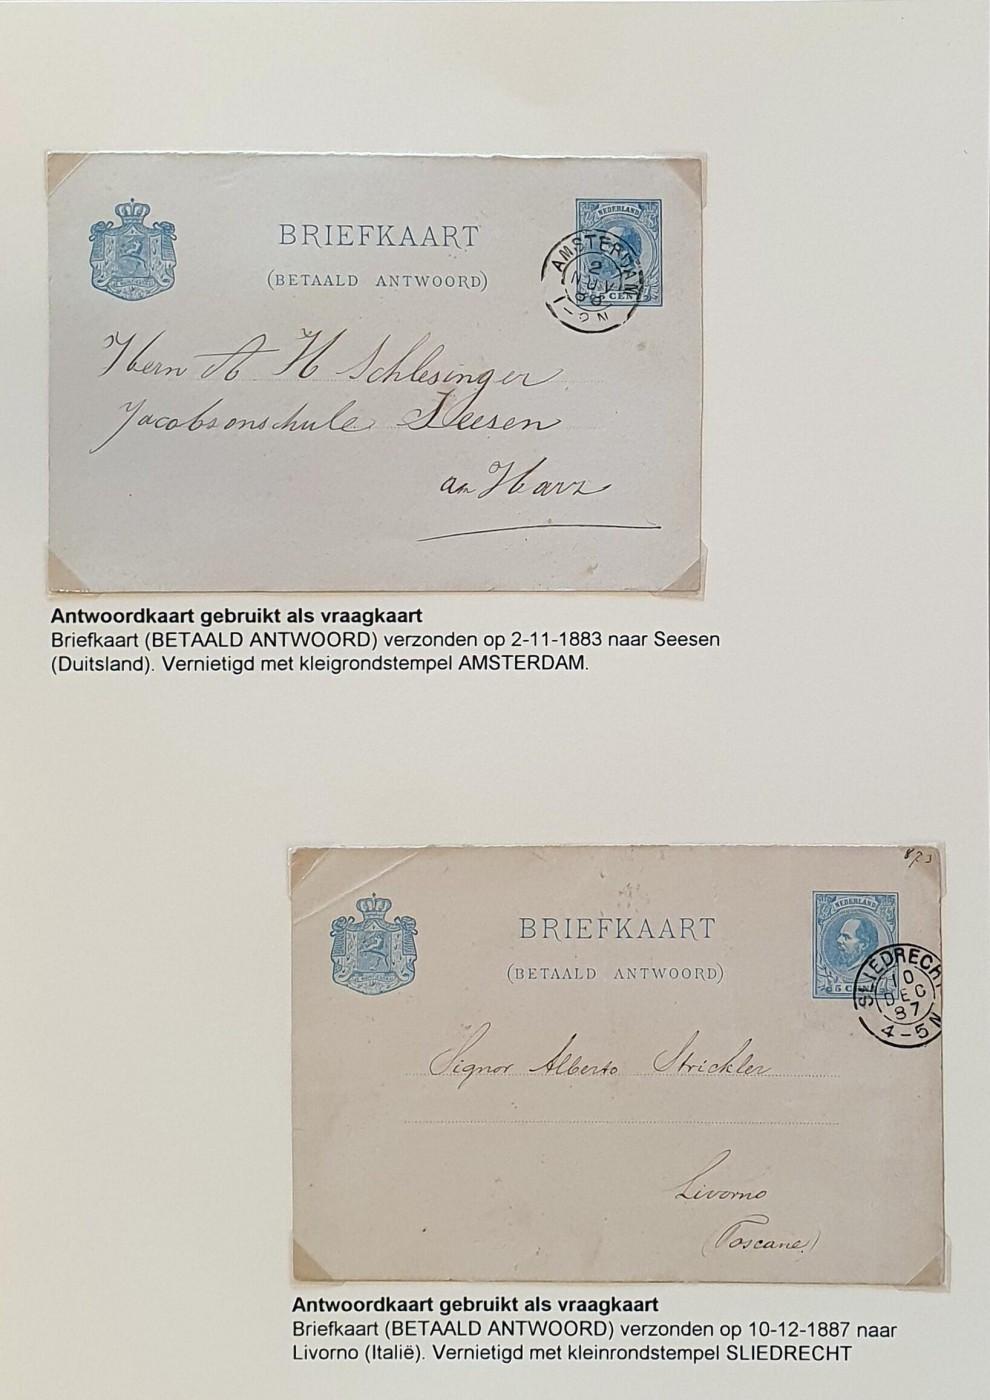 BRIEFKAART
(BETAALD ANTWOORD)
NEDERLAND
CENT
AMSTERDAM
2
NOV
83
Herrn A H Schlesinger
Jacobsonschule Seesen
am Harz
Antwoordkaart gebruikt als vraagkaart
Briefkaart (BETAALD ANTWOORD) verzonden op 2-11-1883 naar Seesen
(Duitsland). Vernietigd met kleigrondstempel AMSTERDAM.
873
BRIEFKAART
(BETAALD ANTWOORD)
NEDERLAND
5 C
SLIEDRECHT
10
DEC
87
4-5N
Signor Alberto Strickler
Livorno
(Toscane)
Antwoordkaart gebruikt als vraagkaart
Briefkaart (BETAALD ANTWOORD) verzonden op 10-12-1887 naar
Livorno (Italië). Vernietigd met kleinrondstempel SLIEDRECHT